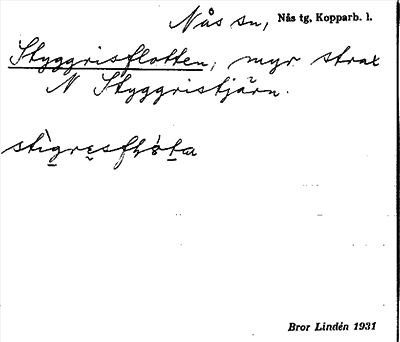 Nås sn, Nås tg, Kopparb. l.
Styggrisflotten, myr strax
N Styggristjärn.
Bror Lindén 1931